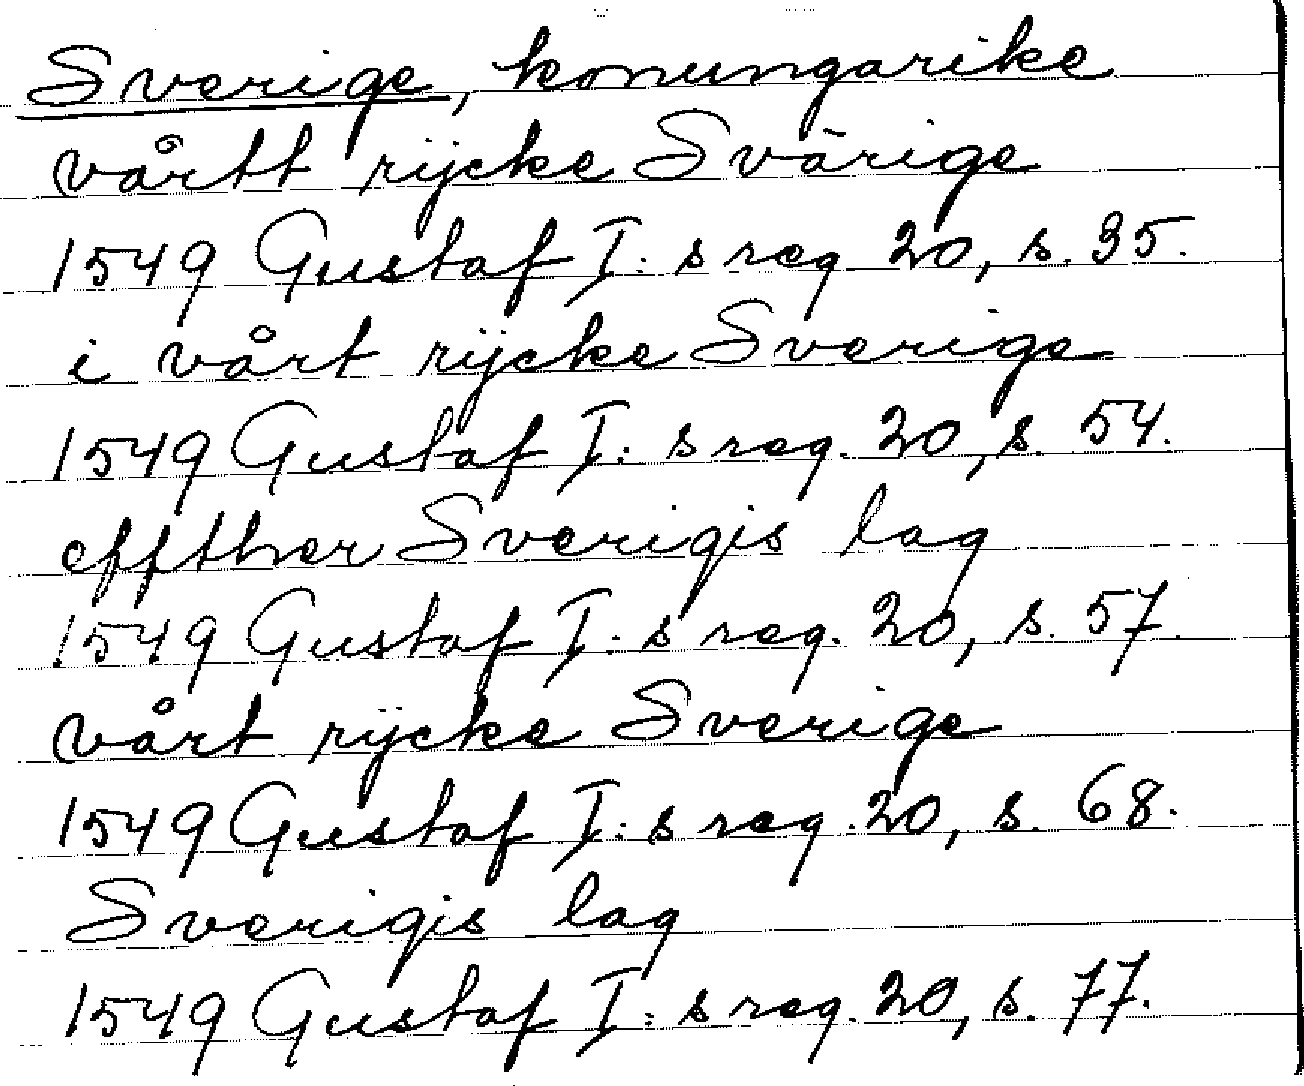 Sverige, konungarike
vårtt rijcke Svärige
1549 Gustaf I:s reg. 20, s. 35.
i vårt rijcke Sverige
1549 Gustaf I:s reg. 20, s. 54.
effther Sverigis lag
1549 Gustaf I:s reg. 20, s. 57.
vårt rijcke Sverige
1549 Gustaf I:s reg. 20, s. 68.
Sverigis lag
1549 Gustaf I:s reg. 20, s. 77.